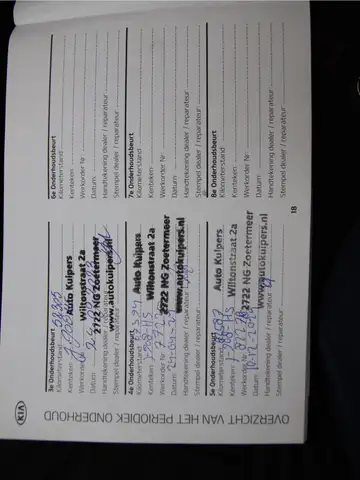 KIA
OVERZICHT VAN HET PERIODIEK ONDERHOUD
3e Onderhoudsbeurt
Kilometerstand
Kenteken:
Werkorder Nr
Datum:
Handtekening dealer / reparateur
Stempel dealer / reparateur
Auto Kuipers
Wiltonstraat 2a
2722 NG Zoetermeer
www.autokuipers.nl
4e Onderhoudsbeurt
Kilometerstand
Kenteken:
Werkorder Nr
Datum:
Handtekening dealer / reparateur
Stempel dealer / reparateur
Auto Kuipers
Wiltonstraat 2a
2722 NG Zoetermeer
www.autokuipers.nl
5e Onderhoudsbeurt
Kilometerstand
Kenteken:
Werkorder Nr
Datum:
Handtekening dealer / reparateur
Stempel dealer / reparateur
Auto Kuipers
Wiltonstraat 2a
2722 NG Zoetermeer
www.autokuipers.nl
6e Onderhoudsbeurt
Kilometerstand
Kenteken:
Werkorder Nr
Datum:
Handtekening dealer / reparateur
Stempel dealer / reparateur
7e Onderhoudsbeurt
Kilometerstand
Kenteken:
Werkorder Nr
Datum:
Handtekening dealer / reparateur
Stempel dealer / reparateur
8e Onderhoudsbeurt
Kilometerstand
Kenteken:
Werkorder Nr
Datum:
Handtekening dealer / reparateur
Stempel dealer / reparateur
18